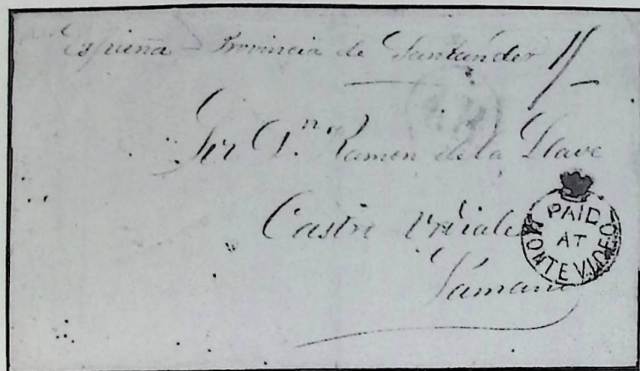 España Provincia de Santander 1/
Sr. Dn. Ramon de la Llave
Castro Urdiales
Sámano
PAID
AT
MONTEVIDEO